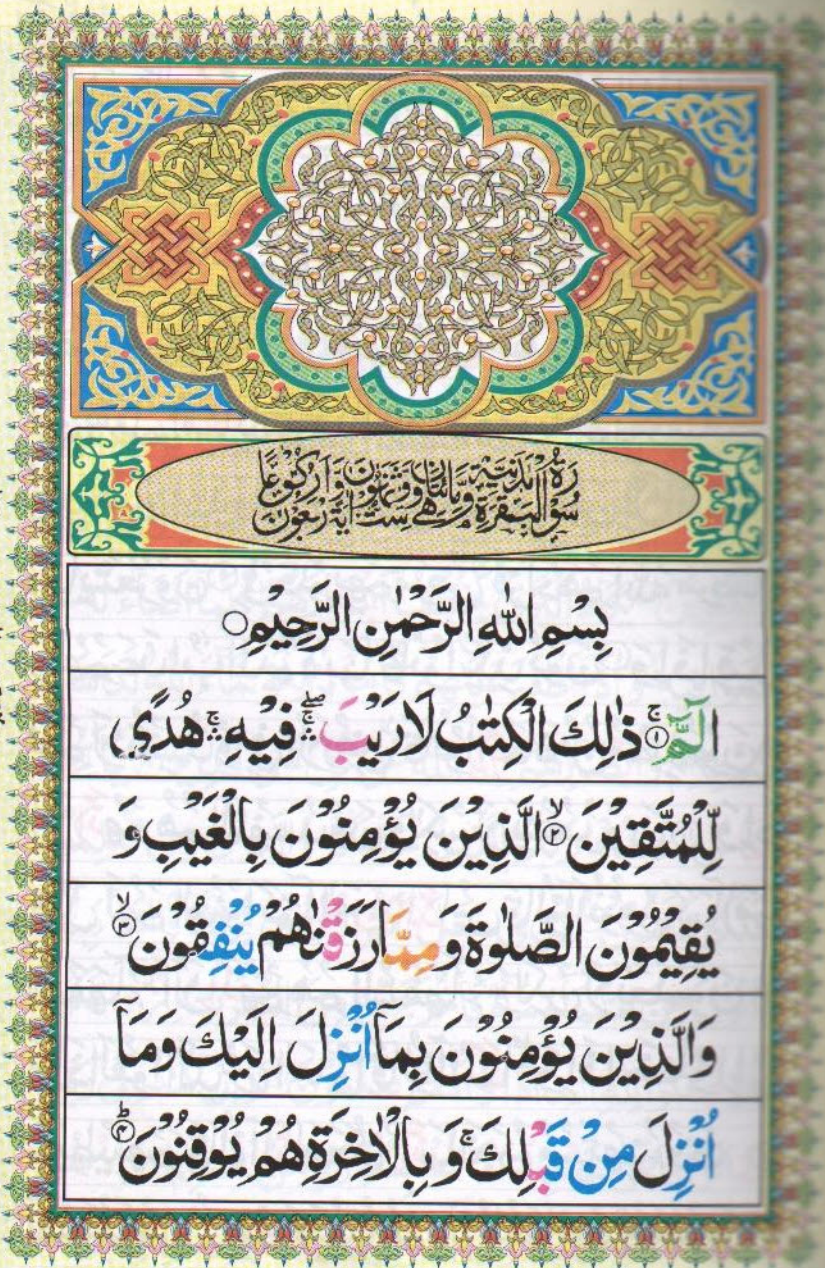 سُوْرَةُ الْبَقَرَةِ مَدَنِيَّةٌ وَّهِيَ مِائَتَانِ وَسِتٌّ وَّثَمَانُوْنَ اٰيَةً وَّاَرْبَعُوْنَ رُكُوْعًا
بِسْمِ اللّٰهِ الرَّحْمٰنِ الرَّحِيْمِ ○
الٓمّٓ ۚ﴿۱﴾ ذٰلِكَ الْكِتٰبُ لَا رَيْبَ ۖۛ ۚ فِيْهِ ۚۛ هُدًى
لِّلْمُتَّقِيْنَ ۙ﴿۲﴾ الَّذِيْنَ يُؤْمِنُوْنَ بِالْغَيْبِ وَ
يُقِيْمُوْنَ الصَّلٰوةَ وَ مِمَّا رَزَقْنٰهُمْ يُنْفِقُوْنَ ۙ﴿۳﴾
وَالَّذِيْنَ يُؤْمِنُوْنَ بِمَاۤ اُنْزِلَ اِلَيْكَ وَمَاۤ
اُنْزِلَ مِنْ قَبْلِكَ ۚ وَ بِالْاٰخِرَةِ هُمْ يُوْقِنُوْنَ ؕ﴿۴﴾